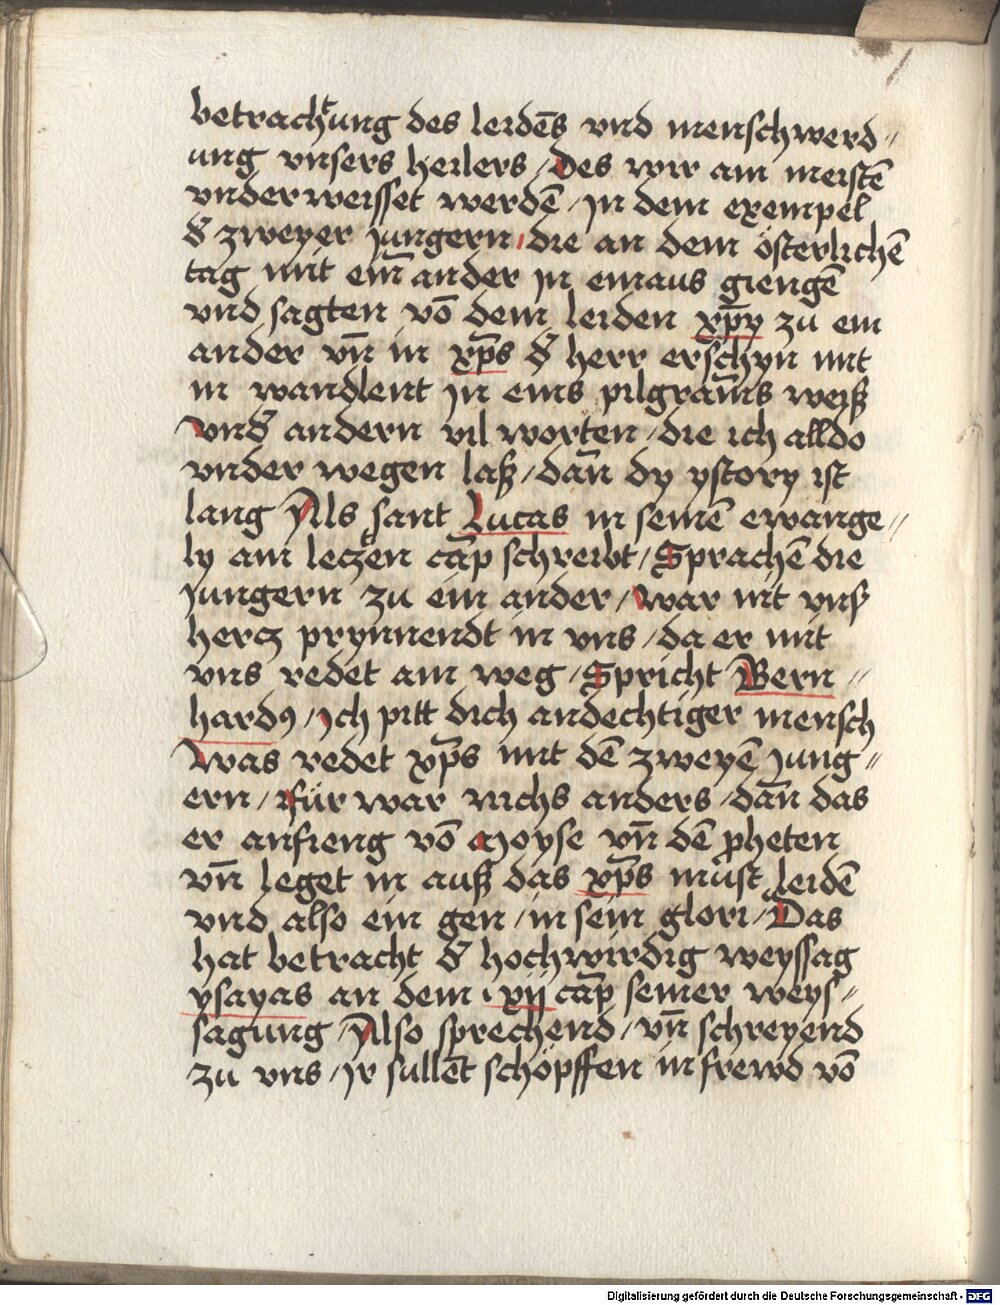 betrachtung des leidēs vnd menschwerd〃
ung vnsers heilers / Des wir am meistē
vnderweisset werdē / jn dem exempel
dʼ zweyer jungern / die an dem österlichē
tag mit eim̄ ander jn emaus giengē
vnd sagten vō dem leiden xp̄y zu ein
ander vn̄ in xp̄s dʼ herr erschyn mit
in wandlent jn eins pilgram̄s weiß
Vndʼ andern vil worten / die ich alldo
vnder wegen laß / dan̄ dy ystory ist
lang Als sant Lucas in seinē ewange〃
ly am leczten cap̄ schreibt / Sprachē die
jungern zu ein ander / War nit vnß
hercz prynnendt in vns / da er mit
vns redet am weg / Spricht Bern〃
hardꝰ / jch pitt dich andechtiger mensch
Was redet xp̄s mit dē zweyē jung〃
ern / Für war nichs anders / dan̄ das
er anfieng vō Moyse vn̄ dē ꝓheten
vn̄ leget in auß das xp̄s můst leidē
vnd also ein gen / in sein glori / Das
hat betracht dʼ hochwirdig weyssag
ysayas an dem · xij cap̄ seiner weys〃
sagung / Also sprechend / vn̄ schreyend
zu vns / jr sullēt schöpffen in frewd vō
Digitalisierung gefördert durch die Deutsche Forschungsgemeinschaft - DFG